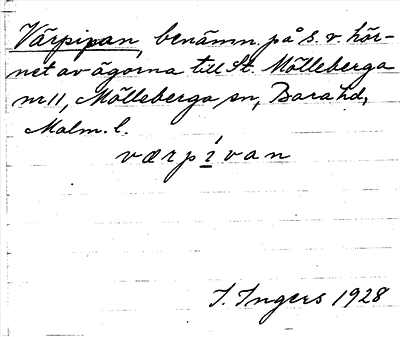 Värpipan, benämn. på s. v. hör-
net av ägorna till St. Mölleberga
nr 11, Mölleberga sn, Bara hd,
Malm. l.
værpívan
I. Ingers 1928